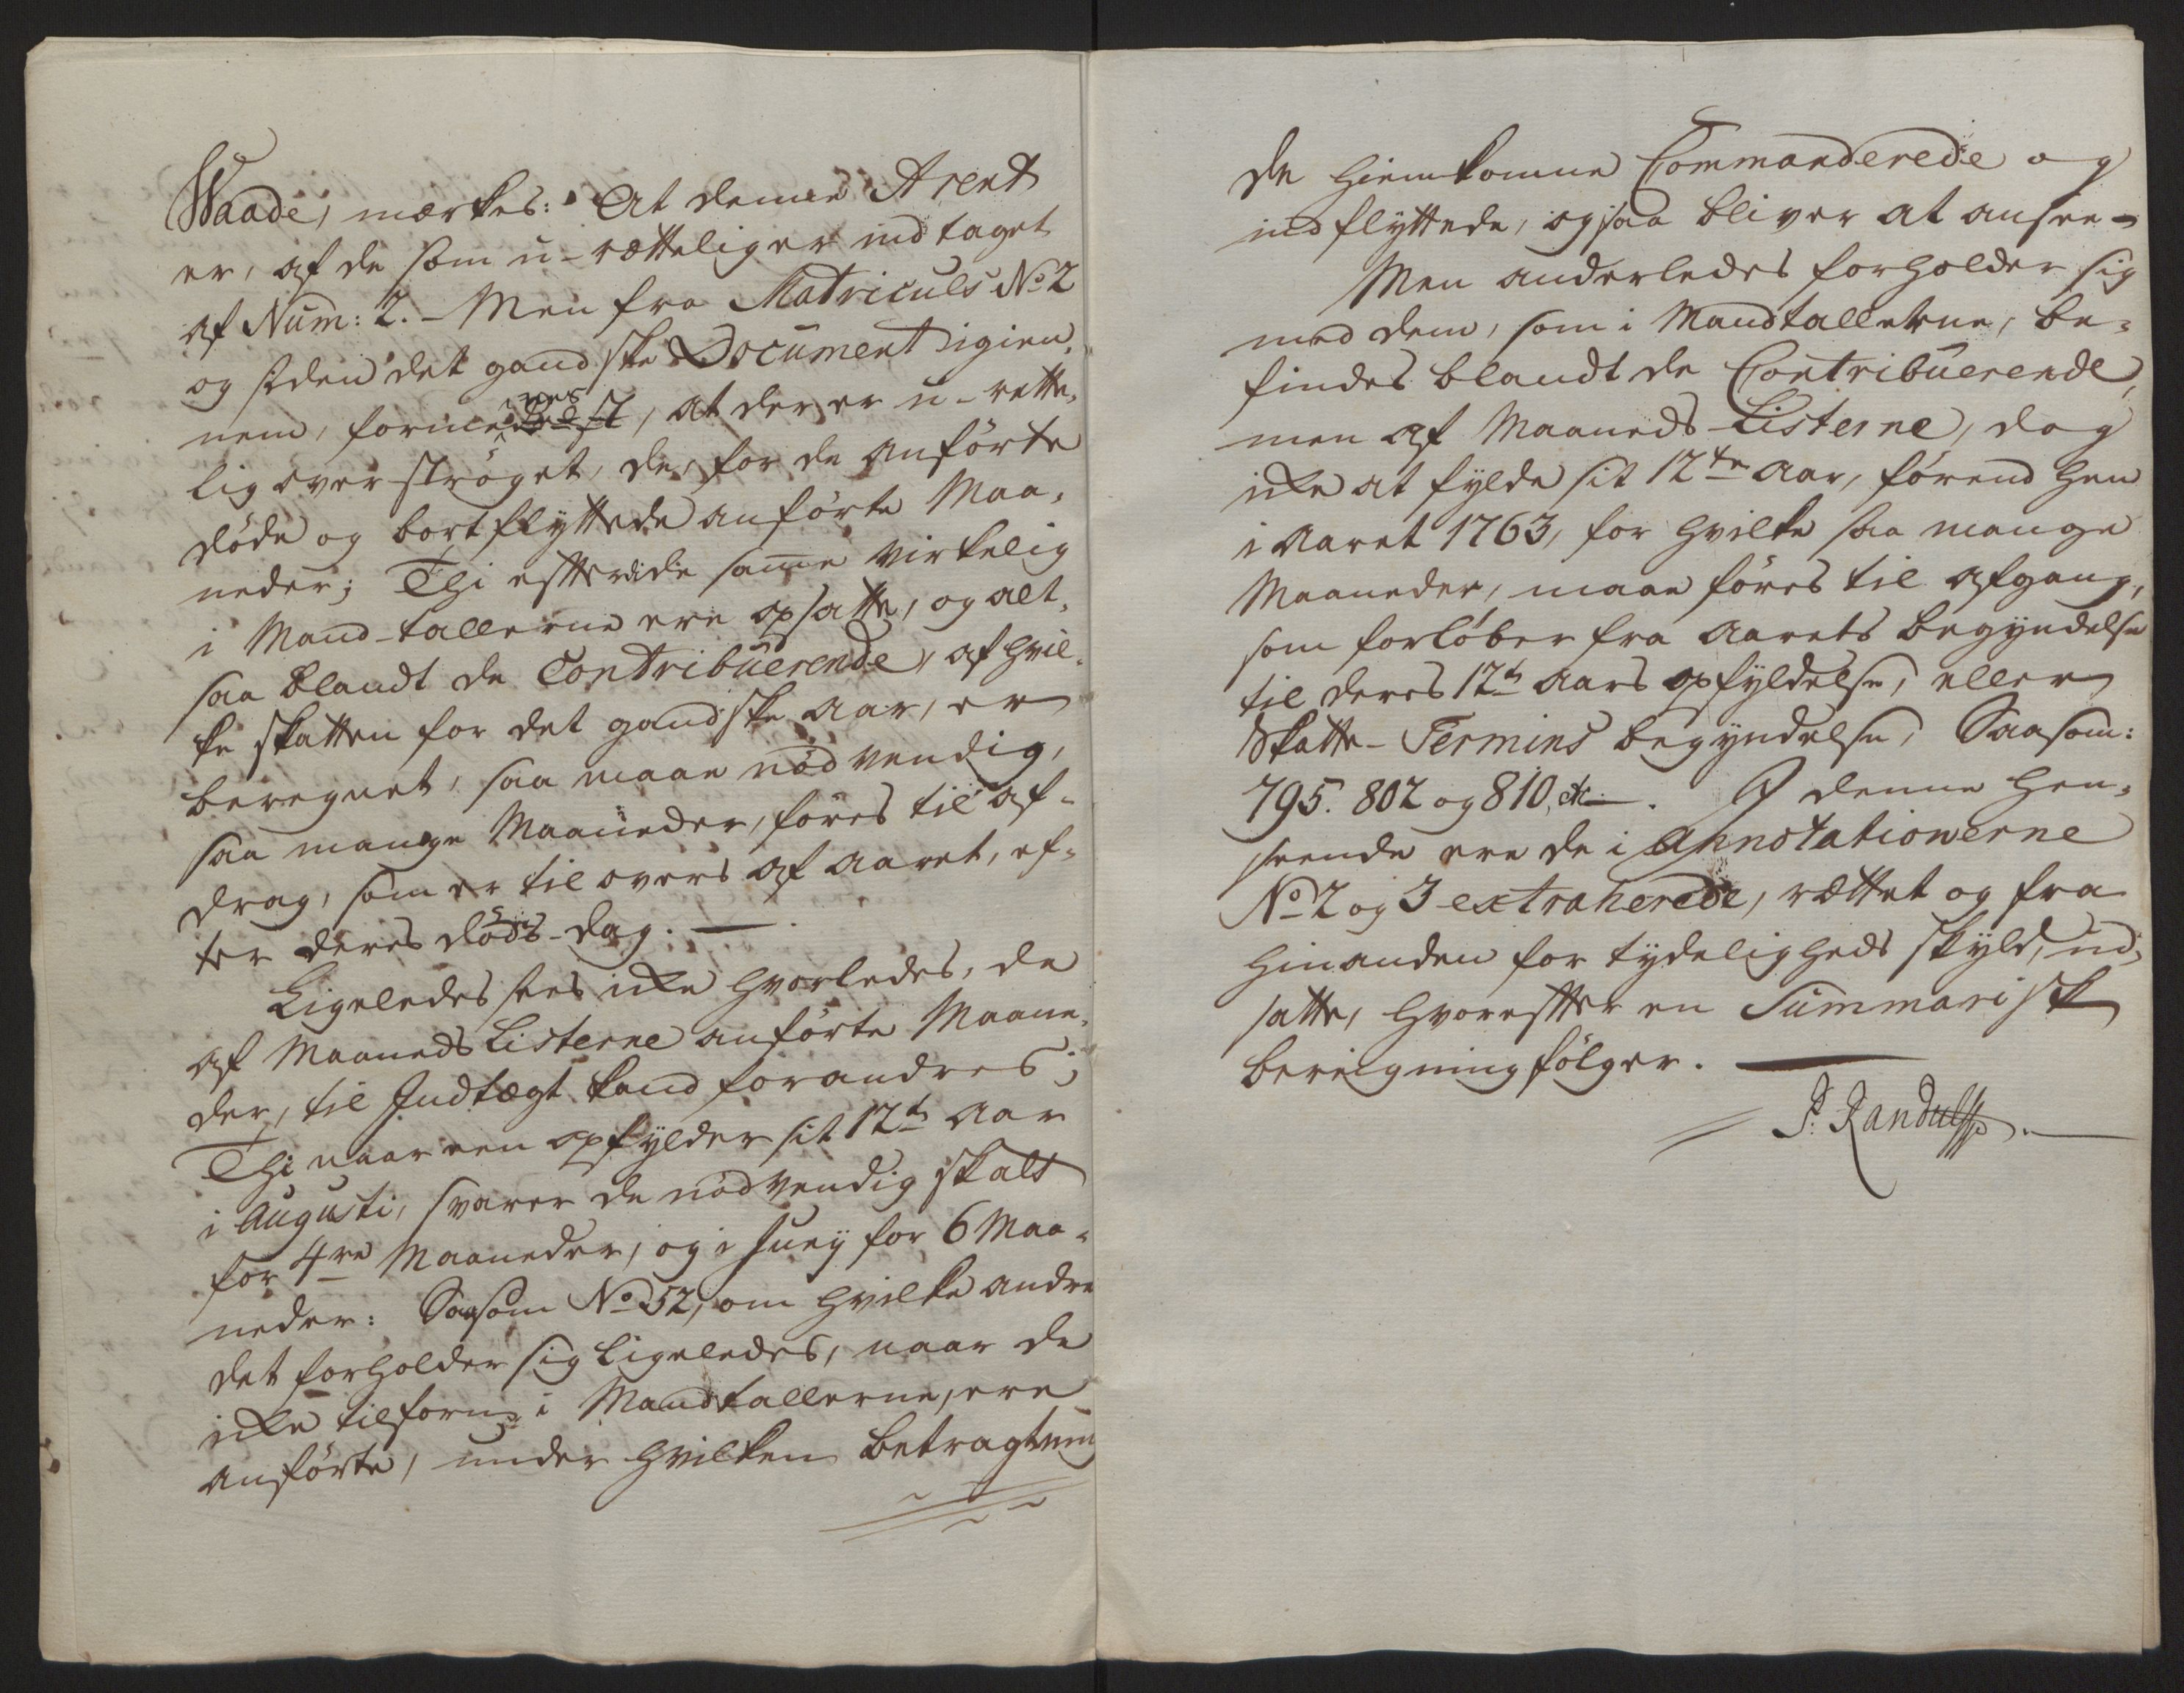 Waade, mærkes: At denne Arent
er, af de som u-rætteligen indtaget
af Num: 2. - Men fra Matriculs No 2
og siden det gandske Document igien,
nem, formenes, at der er u-rette,
lig overströget, de, for de anförte
döde og bortflyttede anförte Maa,
neder; Thi efterdi de samme virkelig
i Mand-tallerne ere opsatte, og alt,
saa blandt de Contribuerende, af hvil,
ke skatten for det gandske Aar, er
beregnet, saa maae nödvendig,
saa mange Maaneder, föres til af-
drag, som er til overs af Aaret, ef-
ter deres döds-dag. —
Ligeledes sees icke hvorledes, de
af Maaneds Listerne anförte Maane,
der, til Indtægt kand forandres;
Thi naar een opfylder sit 12te Aar
i Augusti, svarer de nödvendig skatt
for 4re Maaneder, og i Juny for 6 Maa-
neder: Saasom No 52, om hvilke andre
det forholder sig ligeledes, naar de
icke tilforn i Mandtallerne, ere
anförte, under hvilken betragtning
de hiemkomne Commanderede og
indflyttede, ogsaa bliver at ansee -
Men anderledes forholder sig
med dem, som i Mandtallerne, be-
findes blandt de Contribuerende,
men af Maaneds-Listerne, dog
icke at fylde sit 12te Aar, förend hen
i Aaret 1763, for hvilke saa mange
Maaneder, maae föres til afgang,
som forlöber fra Aarets begyndelse
til deres 12te Aars opfyldelse, eller
Skatte-Termins begyndelse, Saasom:
795. 802 og 810, etc —. I denne hen,
seende ere de i Annotationerne
No 2 og 3 extraherede, rættet og fra
hinanden for tydeligheds skyld, ud,
satte, hvorefter en Summarisk
beregning fölger. —
P: Randulff. —